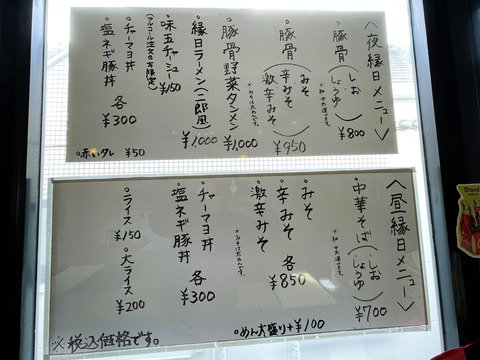 <夜縁日メニュー>
。豚骨(しお しょうゆ)
¥800
。豚骨(みそ 辛みそ 激辛みそ)
¥950
。豚骨野菜タンメン
¥1,000
。縁日ラーメン(二郎風)
¥1000
。味玉チャーシュー
¥150
(アルコール注文の方限定)
。チャーマヨ丼
。塩ネギ豚丼
各
¥300
。赤いタレ ¥50
<昼縁日メニュー>
。中華そば(しお しょうゆ)
¥700
。みそ
。辛みそ
。激辛みそ
各
¥850
。チャーマヨ丼
。塩ネギ豚丼
各
¥300
。ライス
¥150
。大ライス
¥200
。めん大盛り+¥100
※税込価格です。